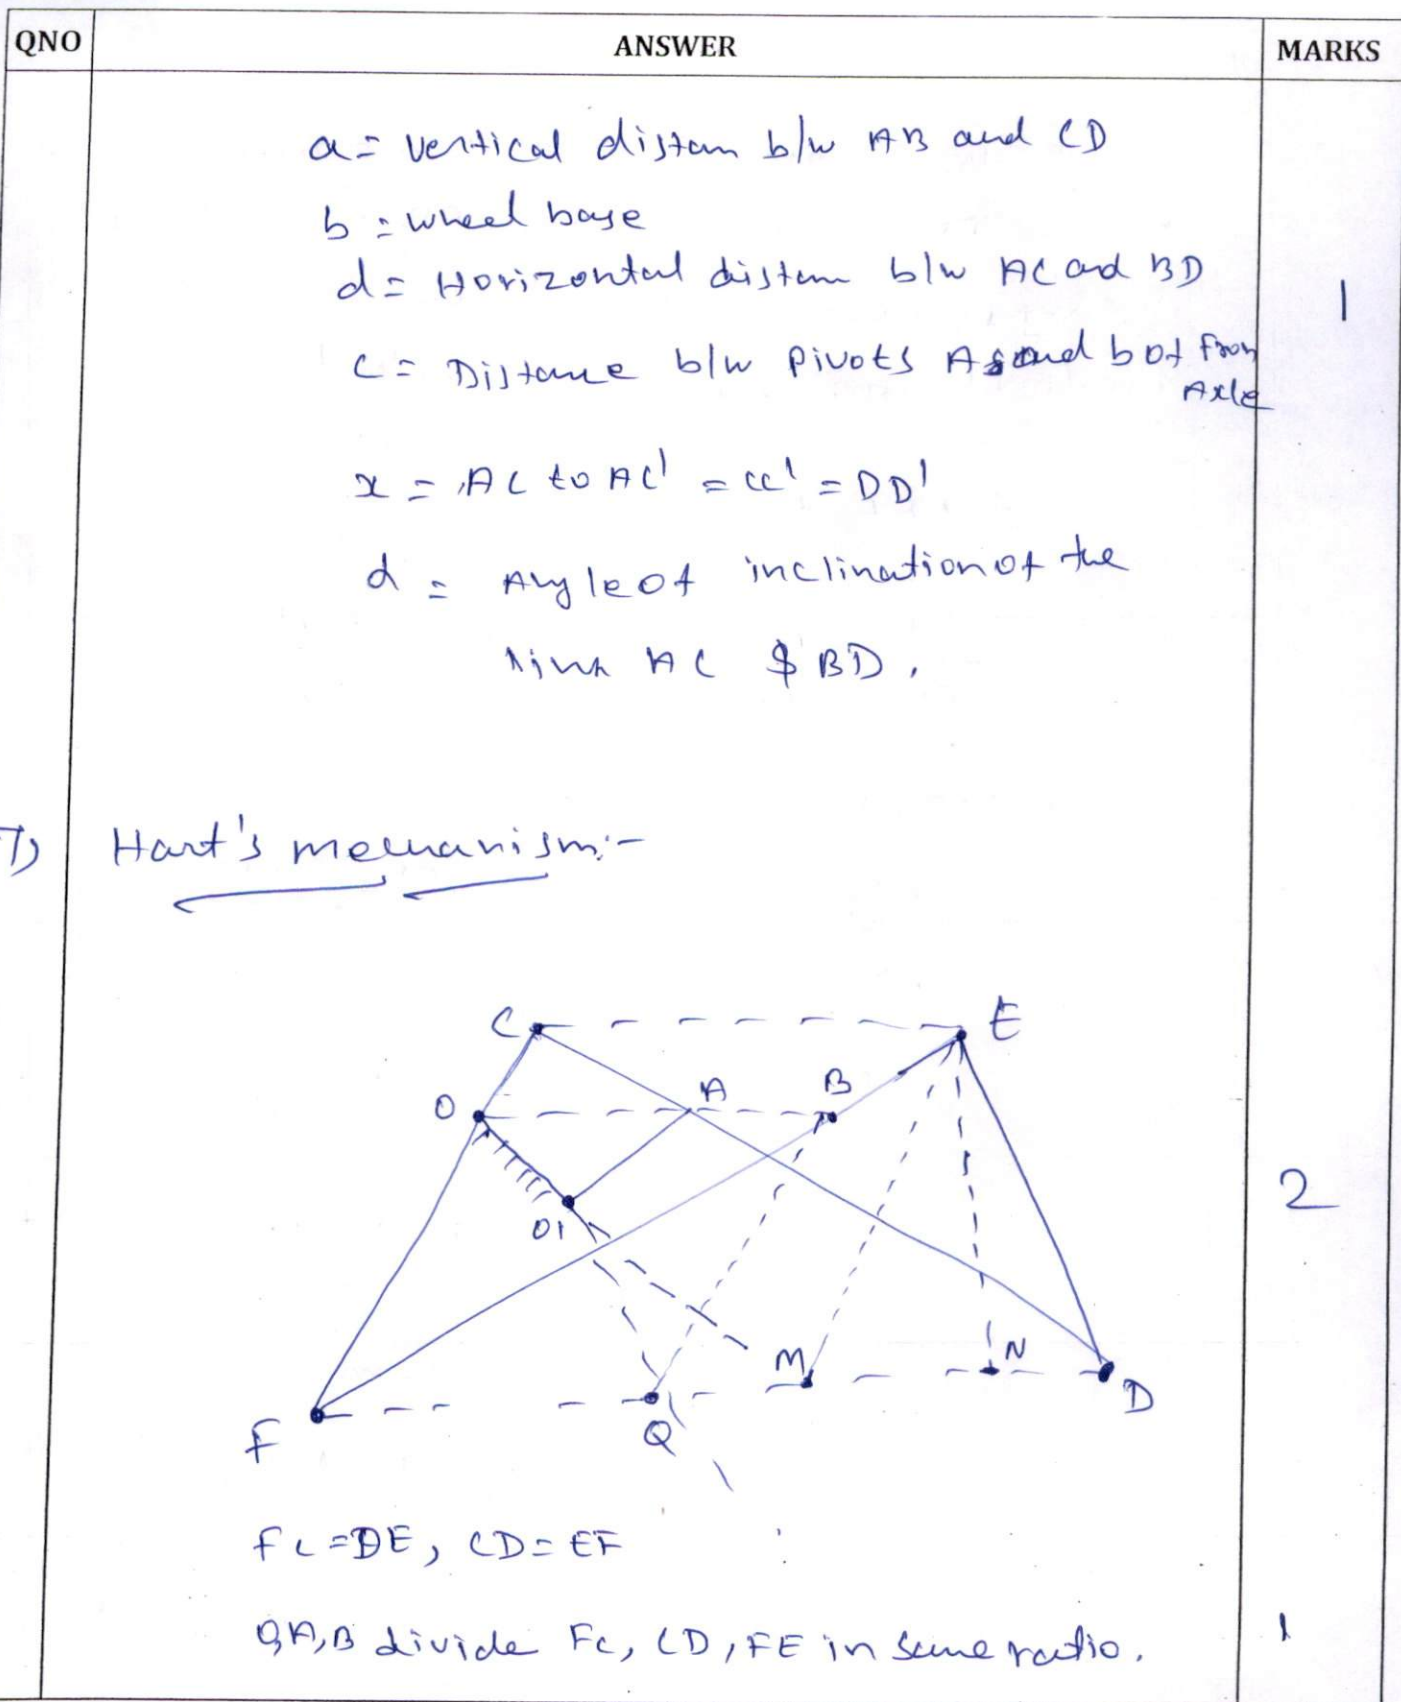 QNO ANSWER MARKS
a = vertical distan b/w AB and CD
b = wheel base
d = Horizontal distan b/w AC and BD
1
c = Distance b/w pivots A and b of from
Axle
x = AC to AC' = CC' = DD'
α = Angle of inclination of the
link AC & BD.
7) Hart's mechanism:-
C E
O A B
O1
2
M N
F Q D
FC = DE, CD = EF
O,A,B divide FC, CD, FE in same ratio. 1